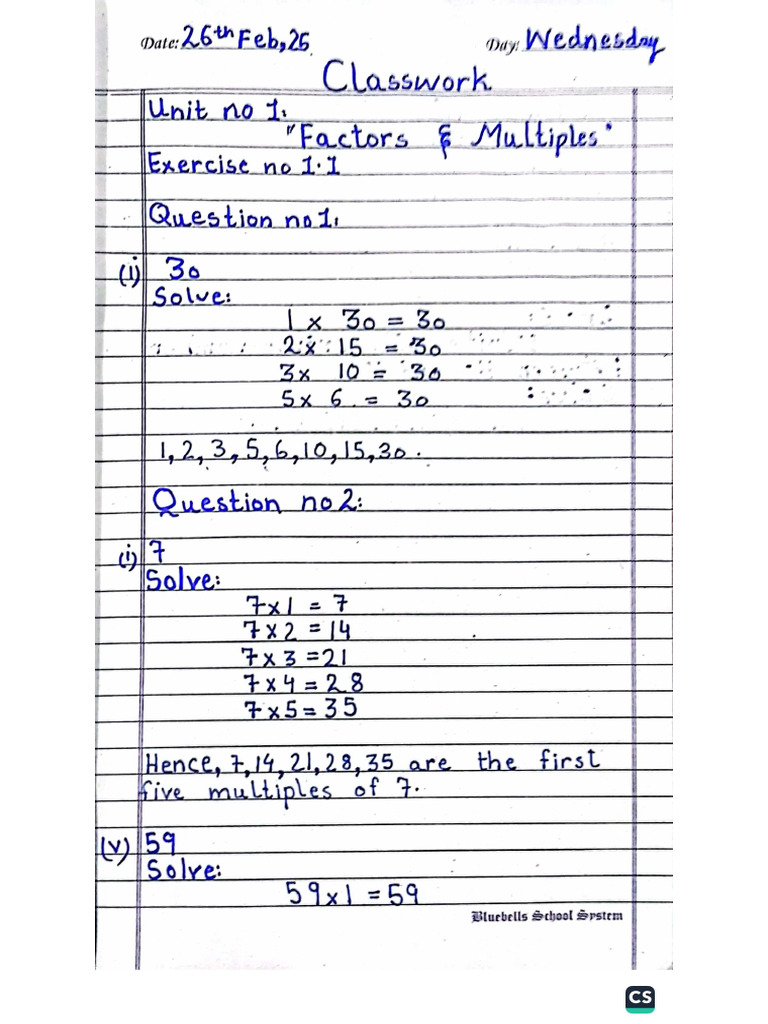 Date: 26th Feb, 25. Day: Wednesday
Classwork
Unit no 1:
"Factors & Multiples"
Exercise no 1.1
Question no 1:
(i) 30
Solve:
1 x 30 = 30
2 x 15 = 30
3 x 10 = 30
5 x 6 = 30
1, 2, 3, 5, 6, 10, 15, 30.
Question no 2:
(i) 7
Solve:
7 x 1 = 7
7 x 2 = 14
7 x 3 = 21
7 x 4 = 28
7 x 5 = 35
Hence, 7, 14, 21, 28, 35 are the first
five multiples of 7.
(v) 59
Solve:
59 x 1 = 59
Bluebells School System
CS